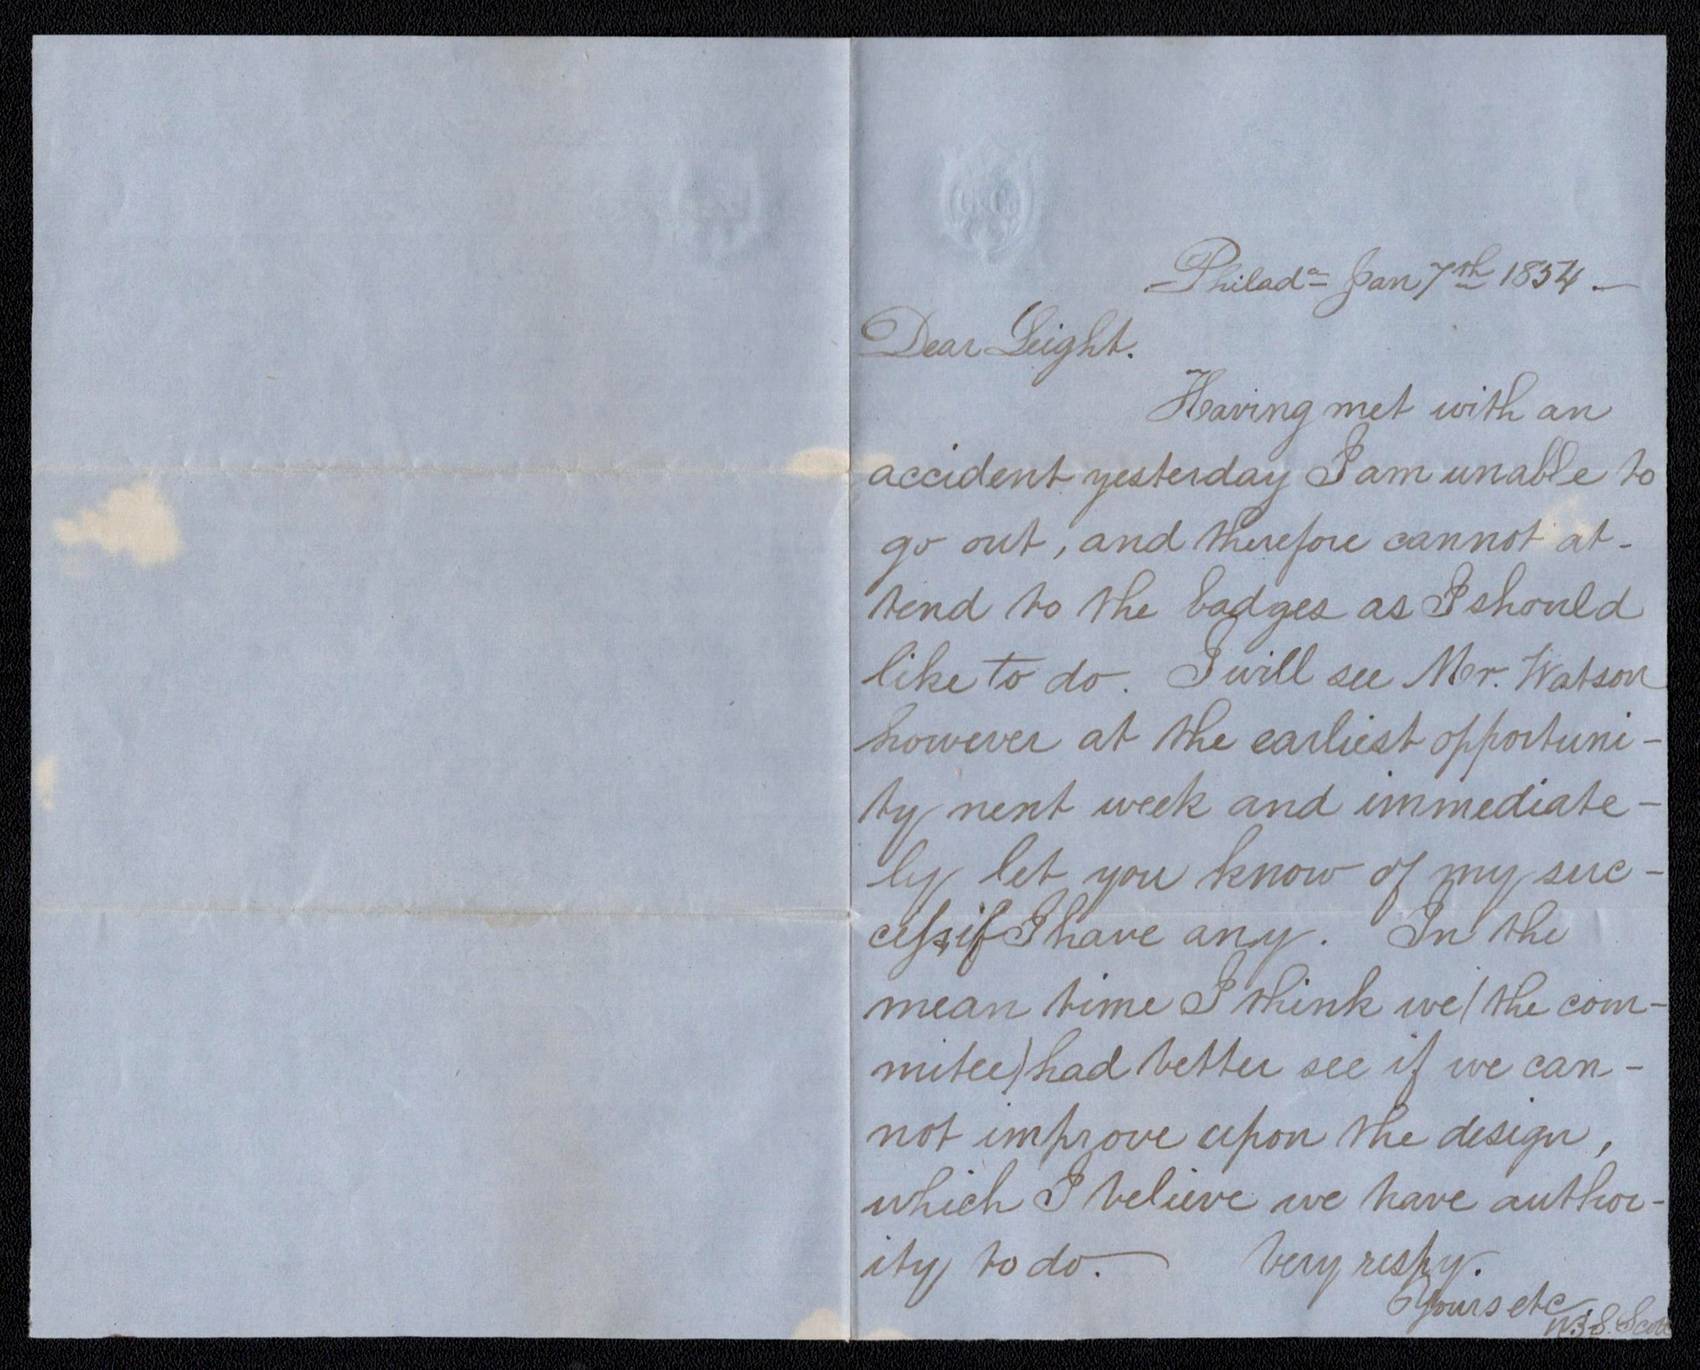 Philada Jan 7th 1854 —
Dear Leight.
Having met with an
accident yesterday I am unable to
go out, and therefore cannot at-
tend to the badges as I should
like to do. I will see Mr. Watson
however at the earliest opportuni-
ty next week and immediate-
ly let you know of my suc-
cess, if I have any. In the
mean time I think we (the com-
mitee) had better see if we can-
not improve upon the design,
which I believe we have author-
ity to do. — Very respy.
Yours etc
S. Scott